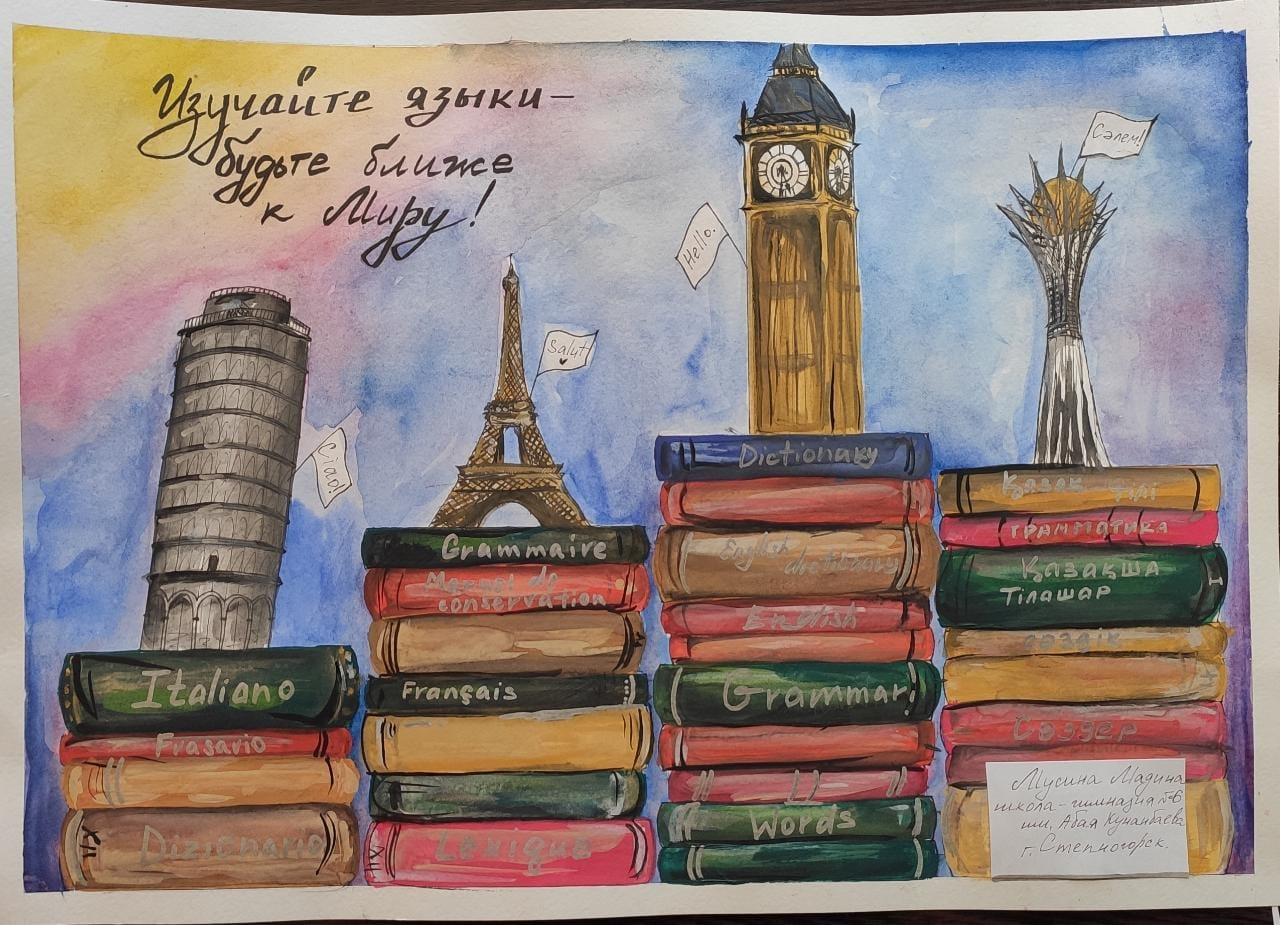 Изучайте языки –
будьте ближе
к Миру!
Ciao!
Salut
Hello.
Сәлем!
Italiano
Frasario
Dizionario
Grammaire
Manuel de
conservation
Français
Lexique
Dictionary
English
dictionary
English
Grammar
Words
Қазақ тілі
грамматика
Қазақша
Тілашар
сөздік
Сөздер
Мусина Мадина
школа-гимназия №6
им. Абая Кунанбаева
г. Степногорск.